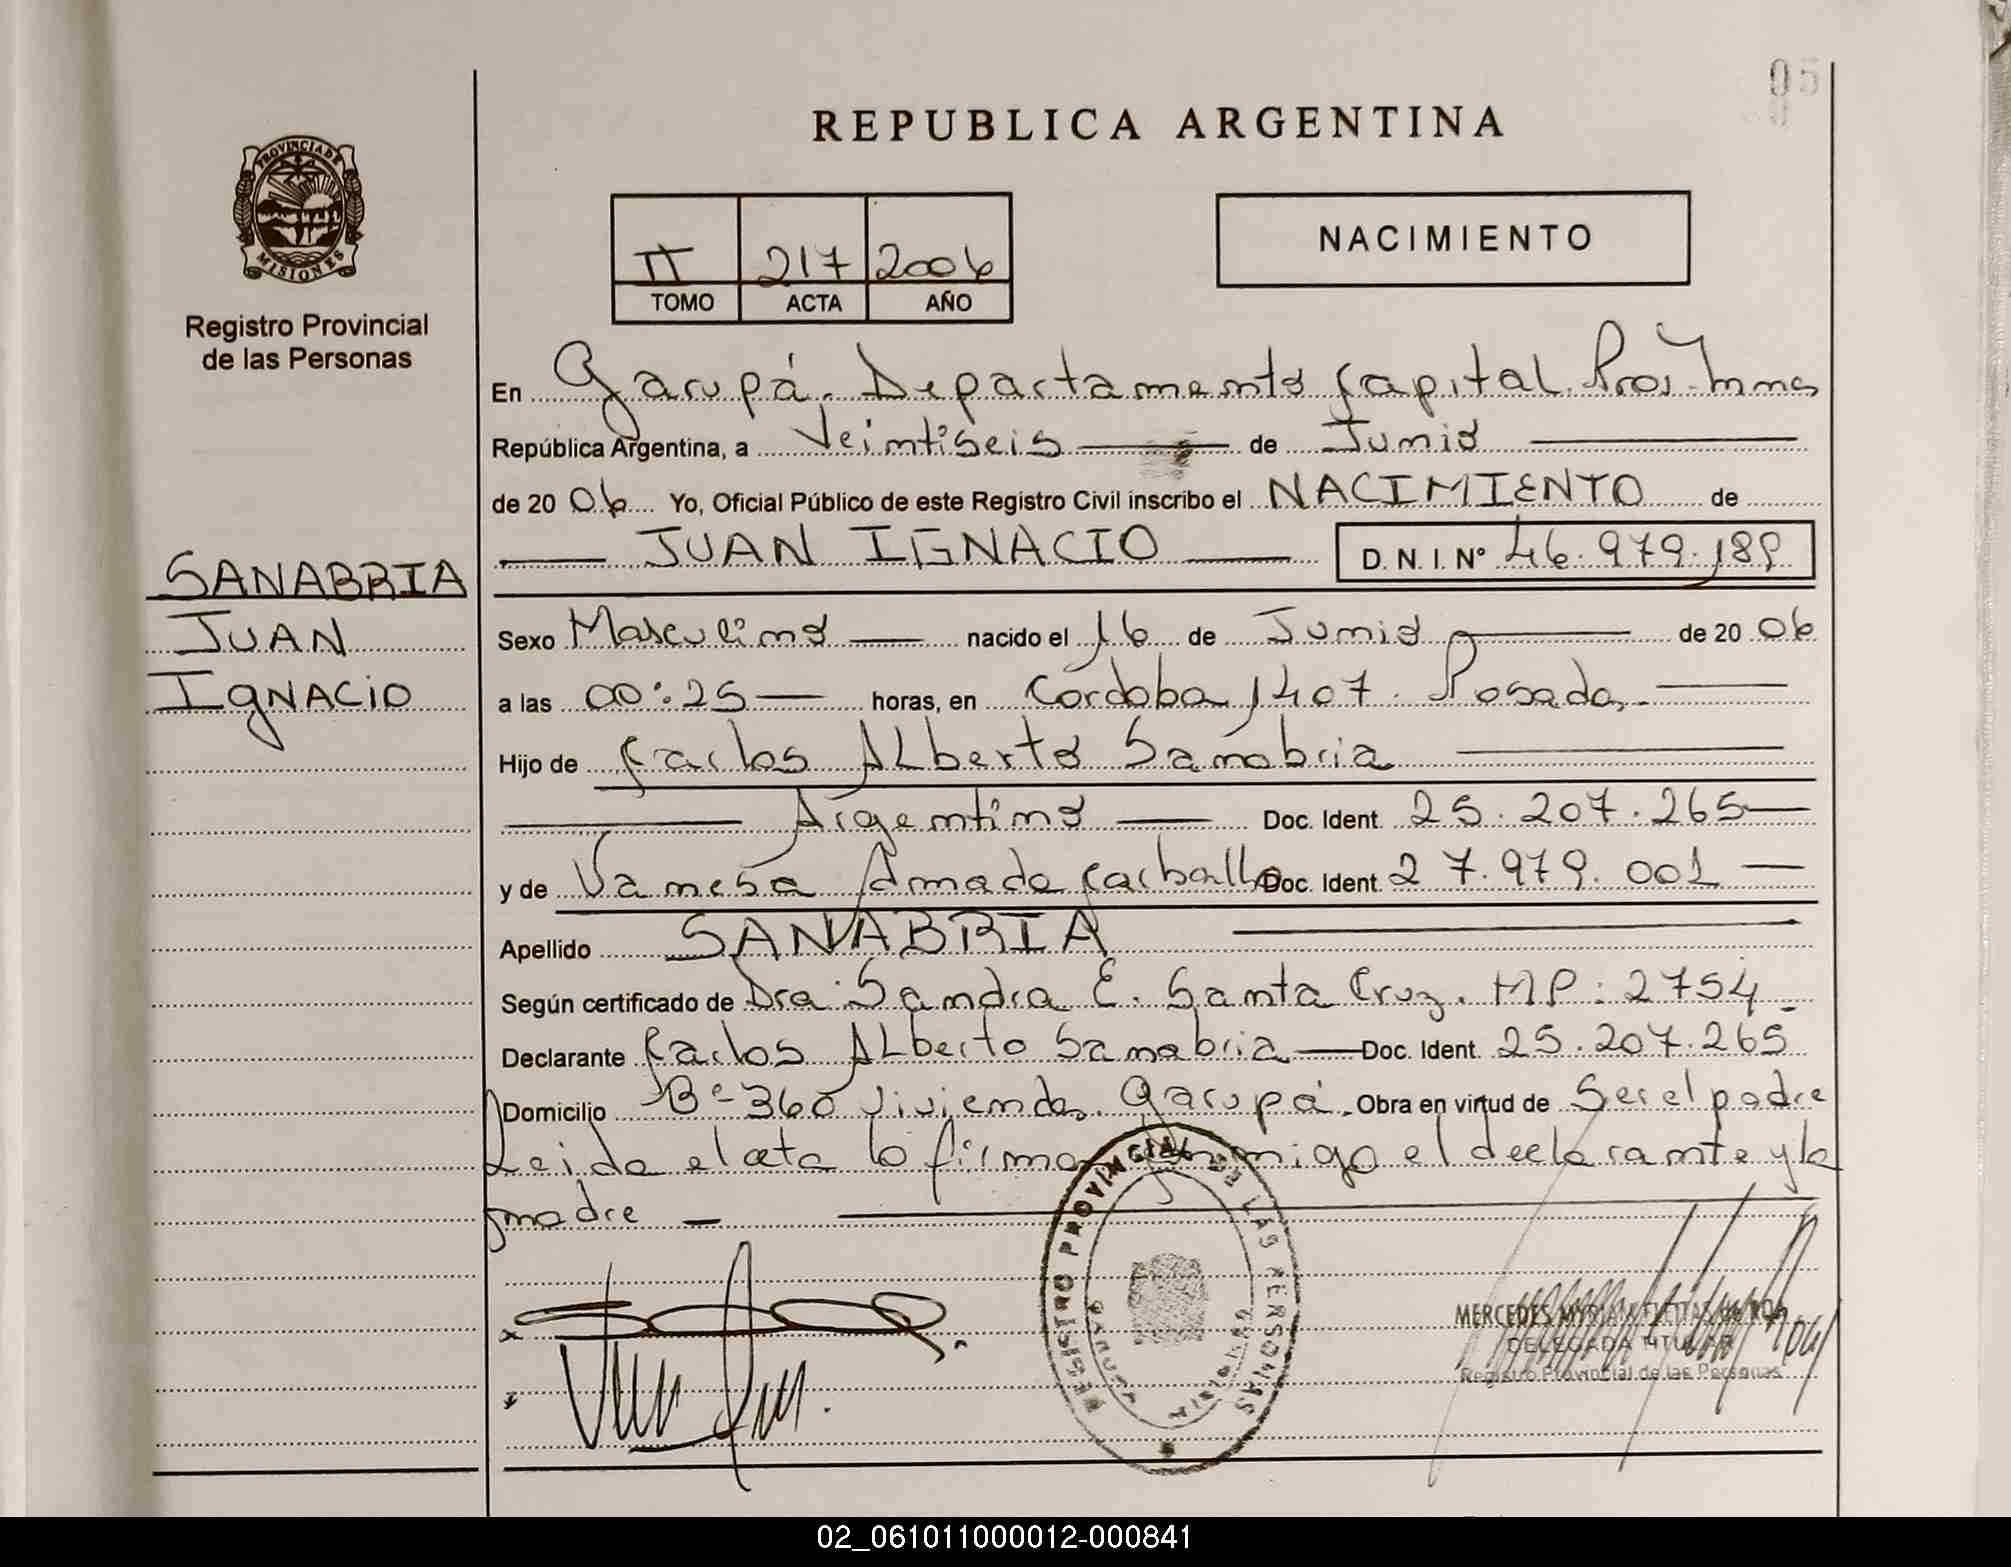 05
REPUBLICA ARGENTINA
PROVINCIA DE MISIONES
Registro Provincial
de las Personas
II 217 2006
TOMO ACTA AÑO
NACIMIENTO
En Garupá, Departamento Capital. Pros. Mnes
República Argentina, a Veintiseis de Junio
de 20 06 Yo, Oficial Público de este Registro Civil inscribo el NACIMIENTO de
JUAN IGNACIO D. N. I. N° 46.979.189
SANABRIA
JUAN
IgNACIO
Sexo Masculino nacido el 16 de Junio de 20 06
a las 00:25 horas, en Córdoba 1407. Posadas.
Hijo de Carlos Alberto Sanabria
Argentino Doc. Ident. 25.207.265
y de Vanesa Amada Carballo Doc. Ident. 27.979.001
Apellido SANABRIA
Según certificado de Dra. Sandra E. Santa Cruz. MP: 2754
Declarante Carlos Alberto Sanabria Doc. Ident. 25.207.265
Domicilio Bº 360 Viviendas. Garupá. Obra en virtud de Ser el padre
Leida el acta lo firman conmigo el declarante y la
madre
REGISTRO PROVINCIAL DE LAS PERSONAS
GARUPA MISIONES
MERCEDES MYRIAM FLEITAS de
DELEGADA TITULAR
Registro Provincial de las Personas
02_061011000012-000841